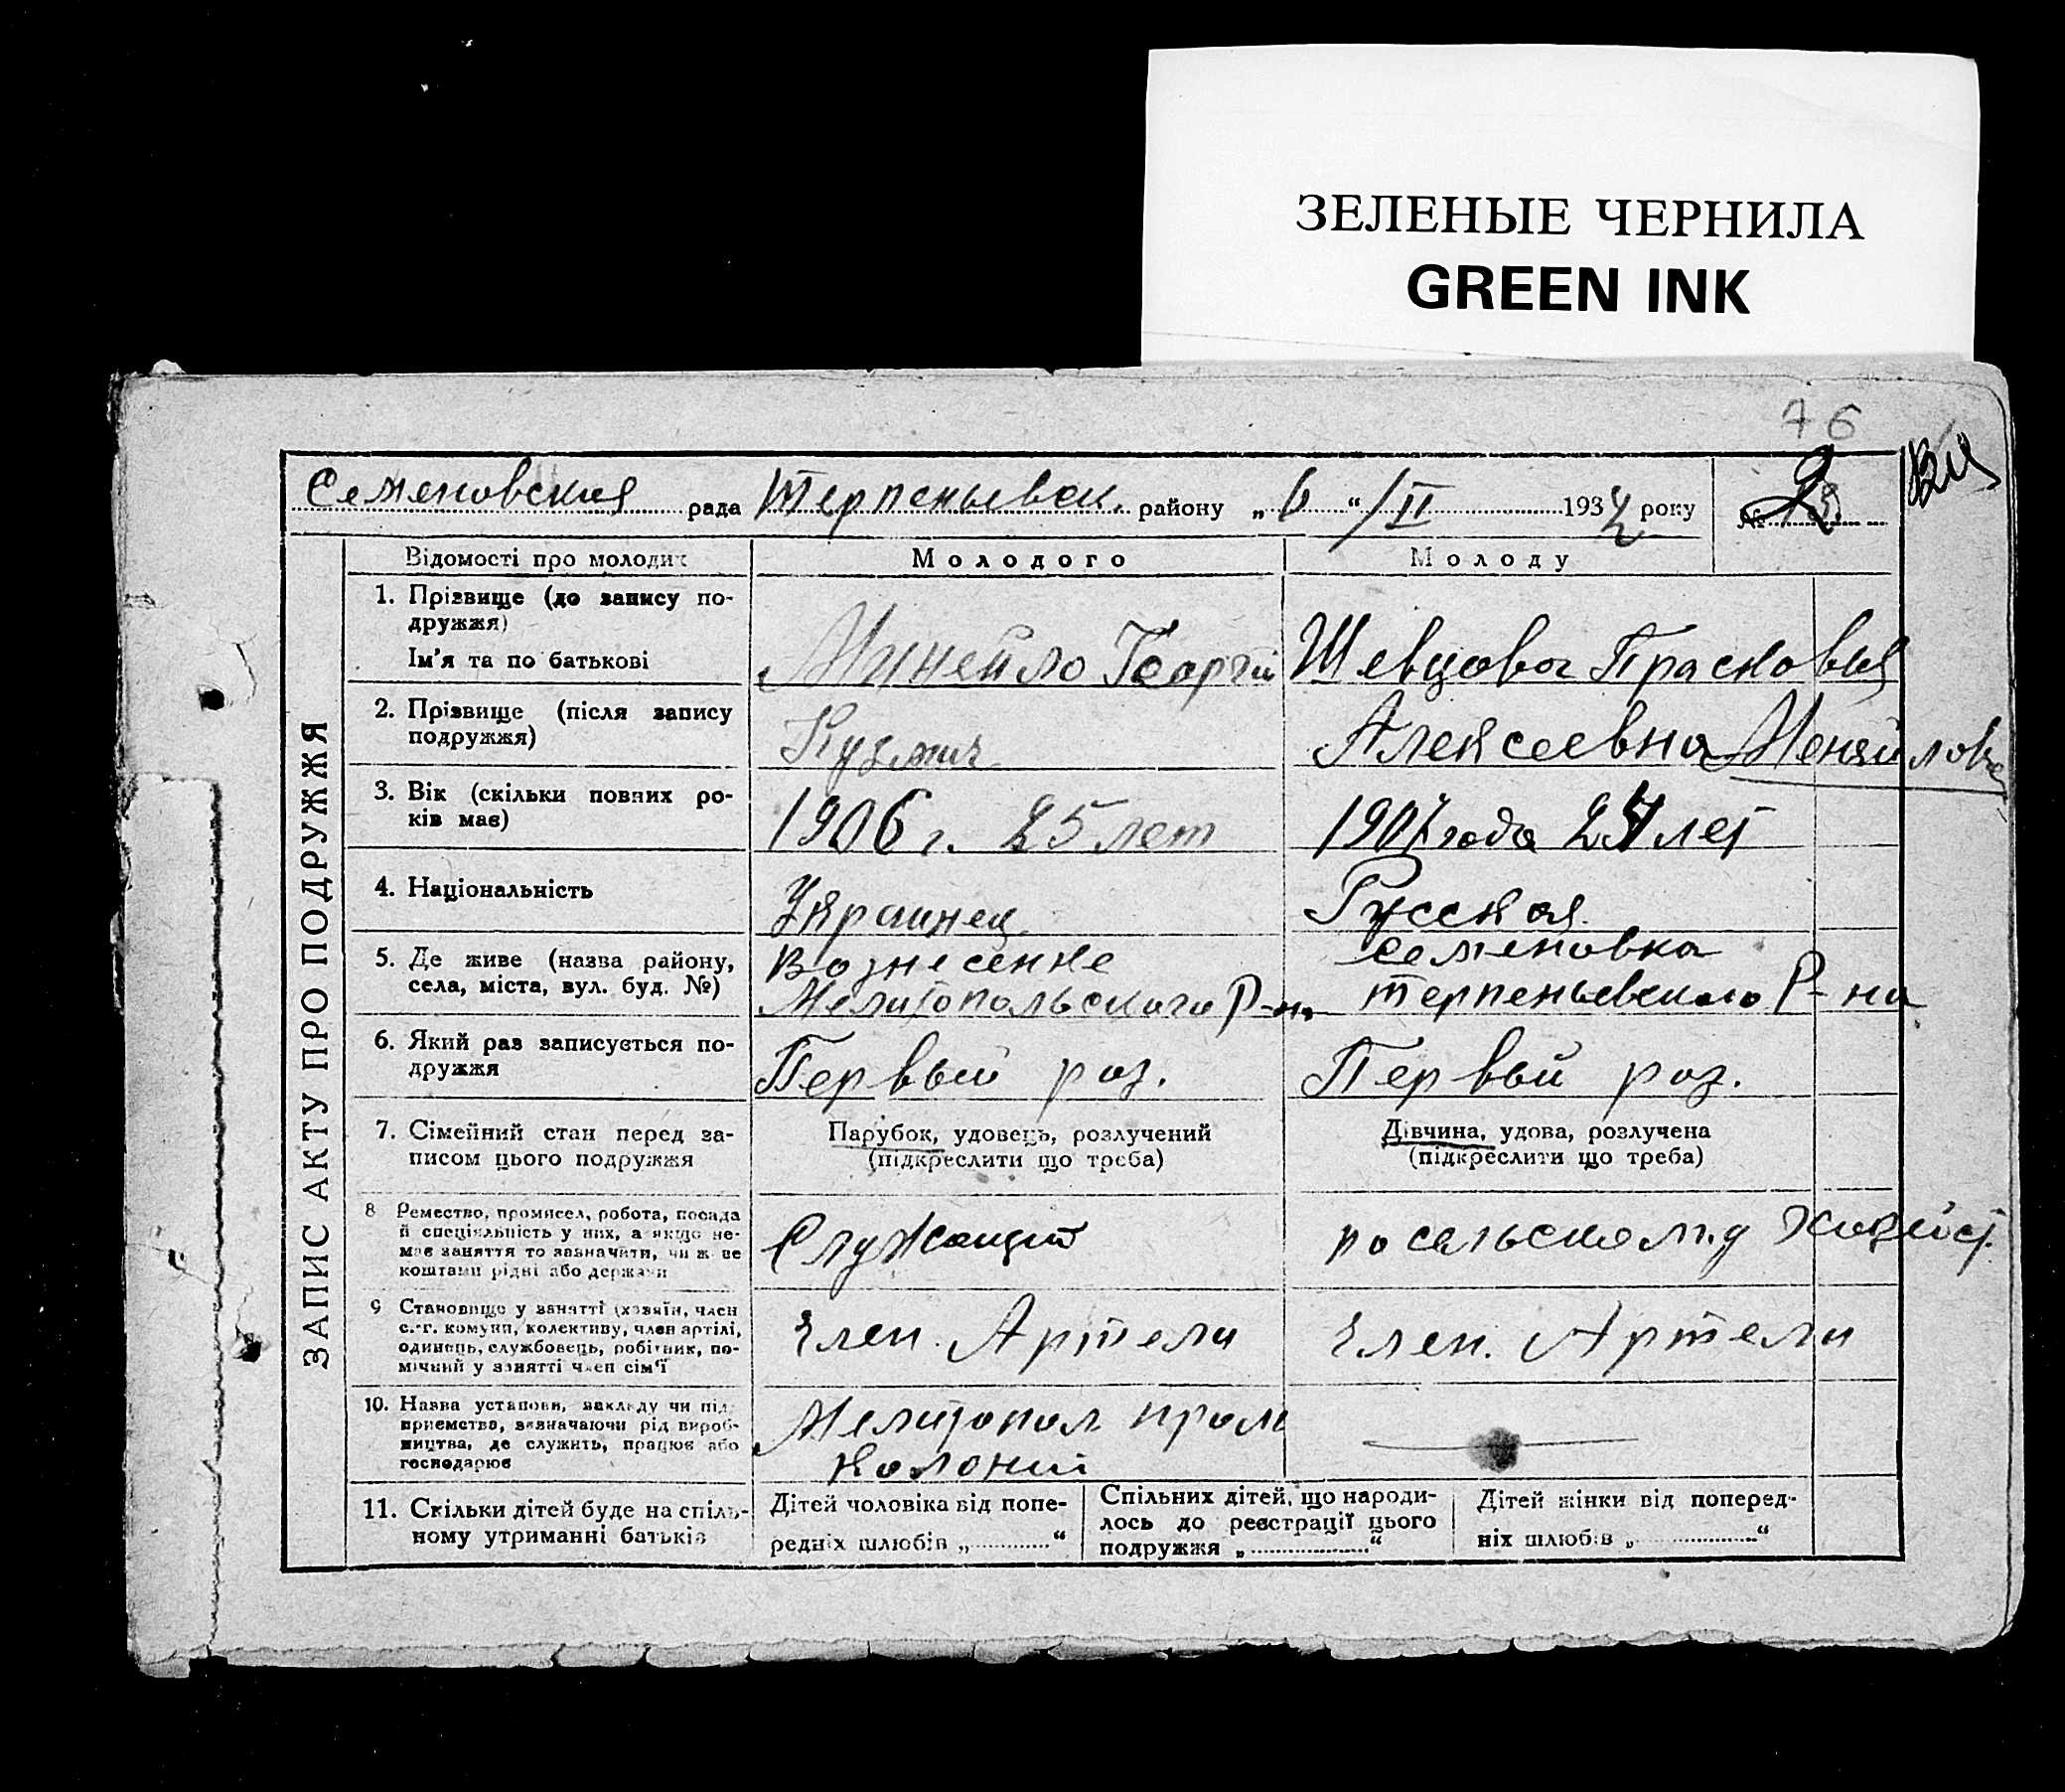 ЗЕЛЕНЫЕ ЧЕРНИЛА
GREEN INK
76
Семеновская рада Терпеньевск. району „ 6 “ /II 1934 року №
ЗАПИС АКТУ ПРО ПОДРУЖЖЯ
Відомості про молодих
Молодого
Молоду
1. Прізвище (до запису по-
дружжя)
Ім'я та по батькові
Георгій
Шевцова Прасковья
2. Прізвище (після запису
подружжя)
Кузмич
Алексеевна Меняйлова
3. Вік (скільки повних ро-
ків має)
1906 г. 25 лет
1907 года 24 лет
4. Національність
Украинец
Русская
5. Де живе (назва району,
села, міста, вул. буд. №)
Вознесенке
Мелитопольского Р-н.
Семеновка
Терпеньевского Р-на
6. Який раз записується по-
дружжя
Первый раз.
Первый раз.
7. Сімейний стан перед за-
писом цього подружжя
Парубок, удовець, розлучений
(підкреслити що треба)
Дівчина, удова, розлучена
(підкреслити що треба)
8 Ремество, промисел, робота, посада
й спеціяльність у них, а якщо не-
має заняття то зазначити, чи живе
коштами рідні або держави
Служащий
по сельскому
9 Становище у занятті (хазяїн, член
с.-г. комуни, колективу, член артілі,
одинець, службовець, робітник, по-
мічний у занятті член сім'ї
Член. Артели
Член. Артели
10. Назва установи, закладу чи під-
приємства, зазначаючи рід вироб-
ництва, де служить, працює або
господарює
Мелитопол пром
Колоний
11. Скільки дітей буде на спіль-
ному утриманні батьків
Дітей чоловіка від попе-
редніх шлюбів „ ............ “
Спільних дітей, що народи-
лось до реєстрації цього
подружжя „ ................... “
Дітей жінки від поперед-
ніх шлюбів „ ................... “